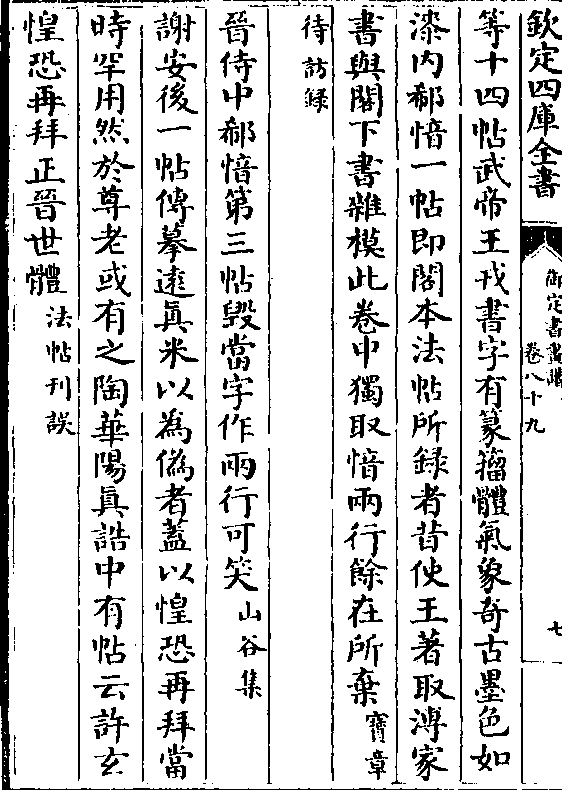 欽定四庫全書
御定書畫譜
卷八十九
七
等十四帖武帝王戎書字有篆籀體氣象奇古墨色如
漆内郗愔一帖即閣本法帖所録者昔使王著取溥家
書與閣下書雜模此卷中獨取愔兩行餘在所棄寳章
待訪録
晉侍中郗愔第三帖毀當字作兩行可笑山谷集
謝安後一帖傳摹逺真米以為僞者蓋以惶恐再拜當
時罕用然於尊老或有之陶華陽真誥中有帖云許玄
惶恐再拜正晉世體法帖刊誤